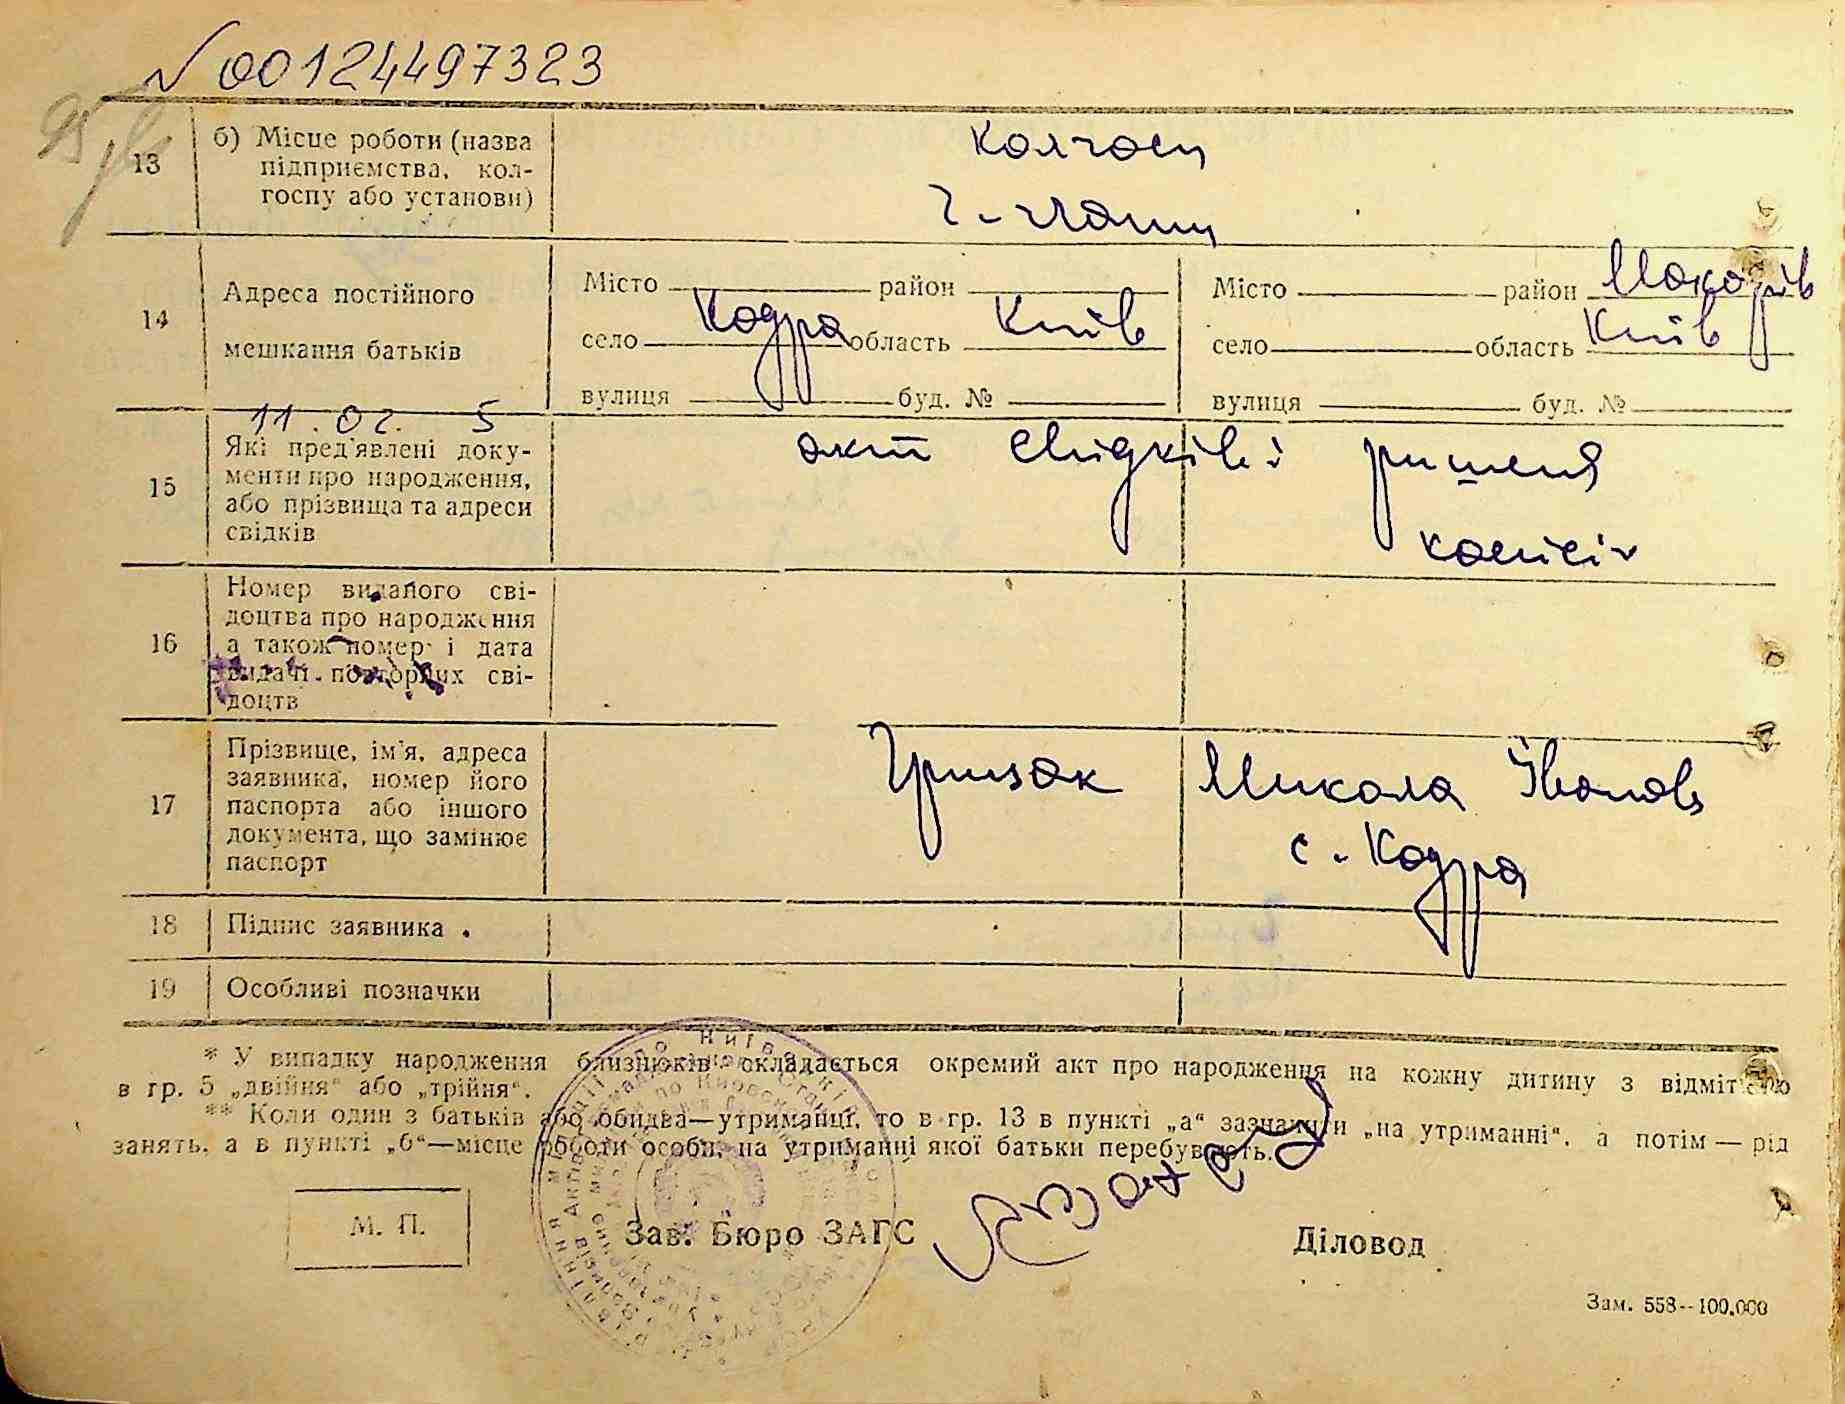 № 00124497323
13
б) Місце роботи (назва
підприємства, кол-
госпу або установи)
колгосп
14
Адреса постійного
мешкання батьків
Місто район
село Кодра область Київ
вулиця буд. №
Місто район Макарів
село область Київ
вулиця буд. №
11.02. 5
15
Які пред'явлені доку-
менти про народження,
або прізвища та адреси
свідків
акт свідків і рішення
комісії
16
Номер виданого сві-
доцтва про народження
а також номер і дата
видачі повторних сві-
доцтв
17
Прізвище, ім'я, адреса
заявника, номер його
паспорта або іншого
документа, що замінює
паспорт
Гризак Микола Іванов
с. Кодра
18 Підпис заявника
19 Особливі позначки
* У випадку народження близнюків складається окремий акт про народження на кожну дитину з відміткою
в гр. 5 „двійня" або „трійня".
** Коли один з батьків або обидва—утриманці, то в гр. 13 в пункті „а" зазначити „на утриманні", а потім — рід
занять, а в пункті „б"—місце роботи особи, на утриманні якої батьки перебувають.
М. П.
Зав. Бюро ЗАГС
Діловод
Зам. 558--100.000